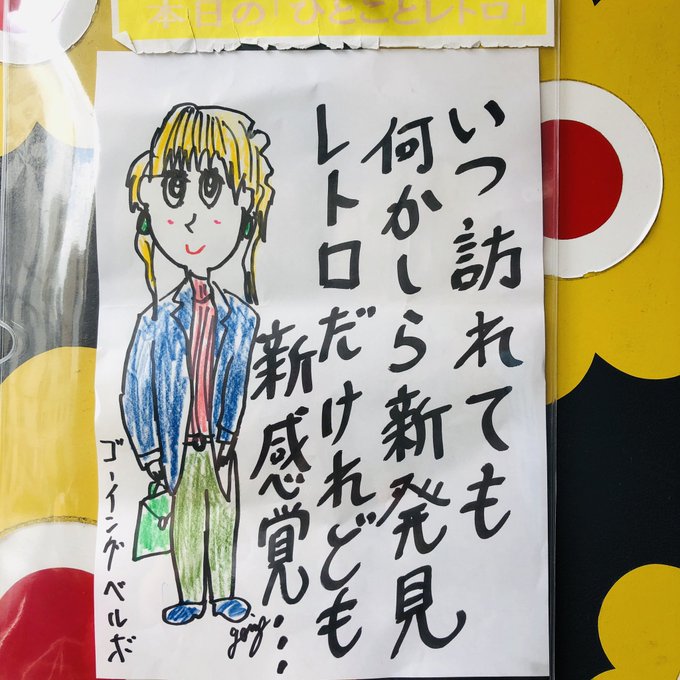 本日の「ひとことレトロ」
いつ訪れても
何かしら新発見
レトロだけれども
新感覚…
ゴーイングベルボ
going